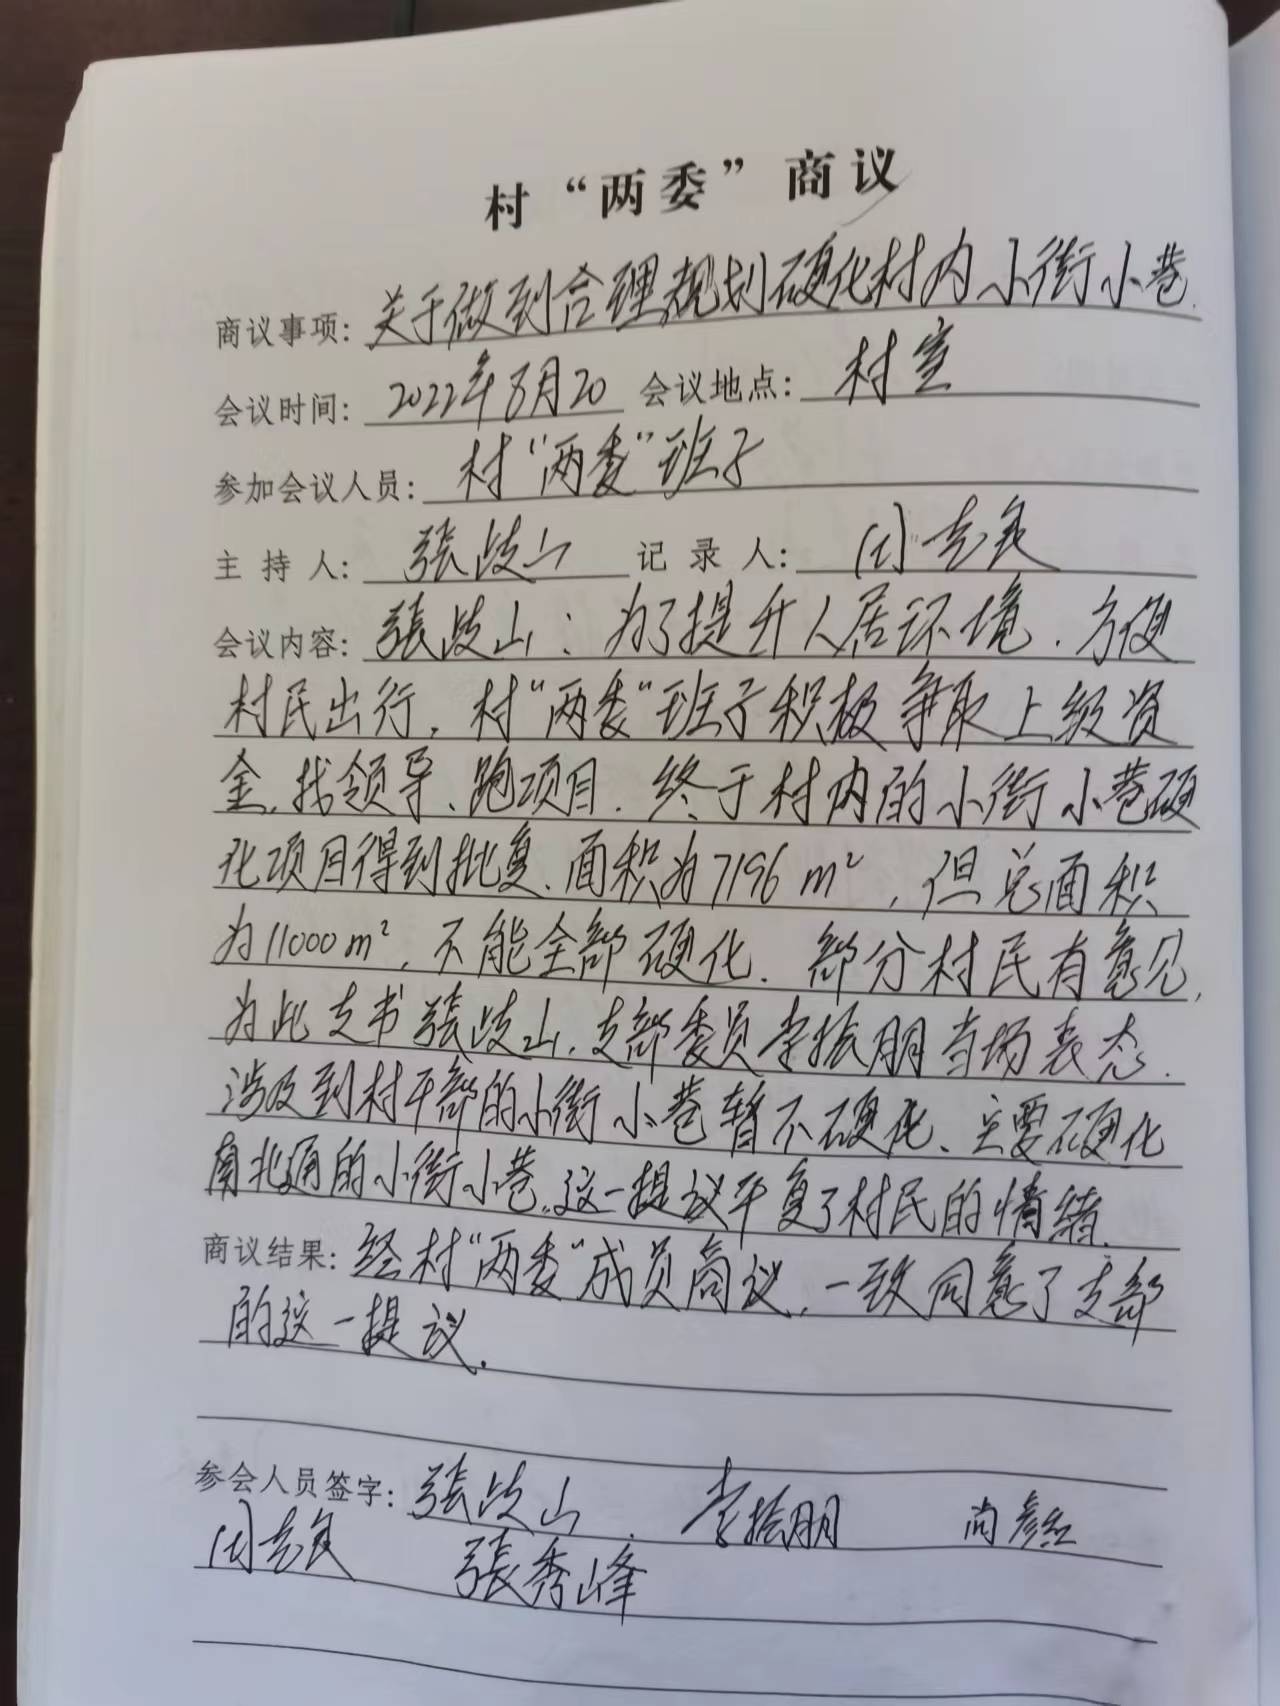 村“两委”商议
商议事项：关于做到合理规划硬化村内小街小巷.
会议时间：2022年8月20 会议地点：村室
参加会议人员：村“两委”班子
主持人：張歧山 记录人：闫志良
会议内容：張歧山：为了提升人居环境，方便
村民出行，村“两委”班子积极争取上级资
金，找领导、跑项目，终于村内的小街小巷硬
化项目得到批复、面积为7196m²，但总面积
为11000m²，不能全部硬化，部分村民有意见，
为此支书張歧山，支部委员李振朋当场表态，
涉及到村干部的小街小巷暂不硬化、主要硬化
南北通的小街小巷。这一提议平复了村民的情绪.
商议结果：经村“两委”成员商议，一致同意了支部
的这一提议.
参会人员签字：張歧山 李振朋 尚彦红
闫志良 張秀峰